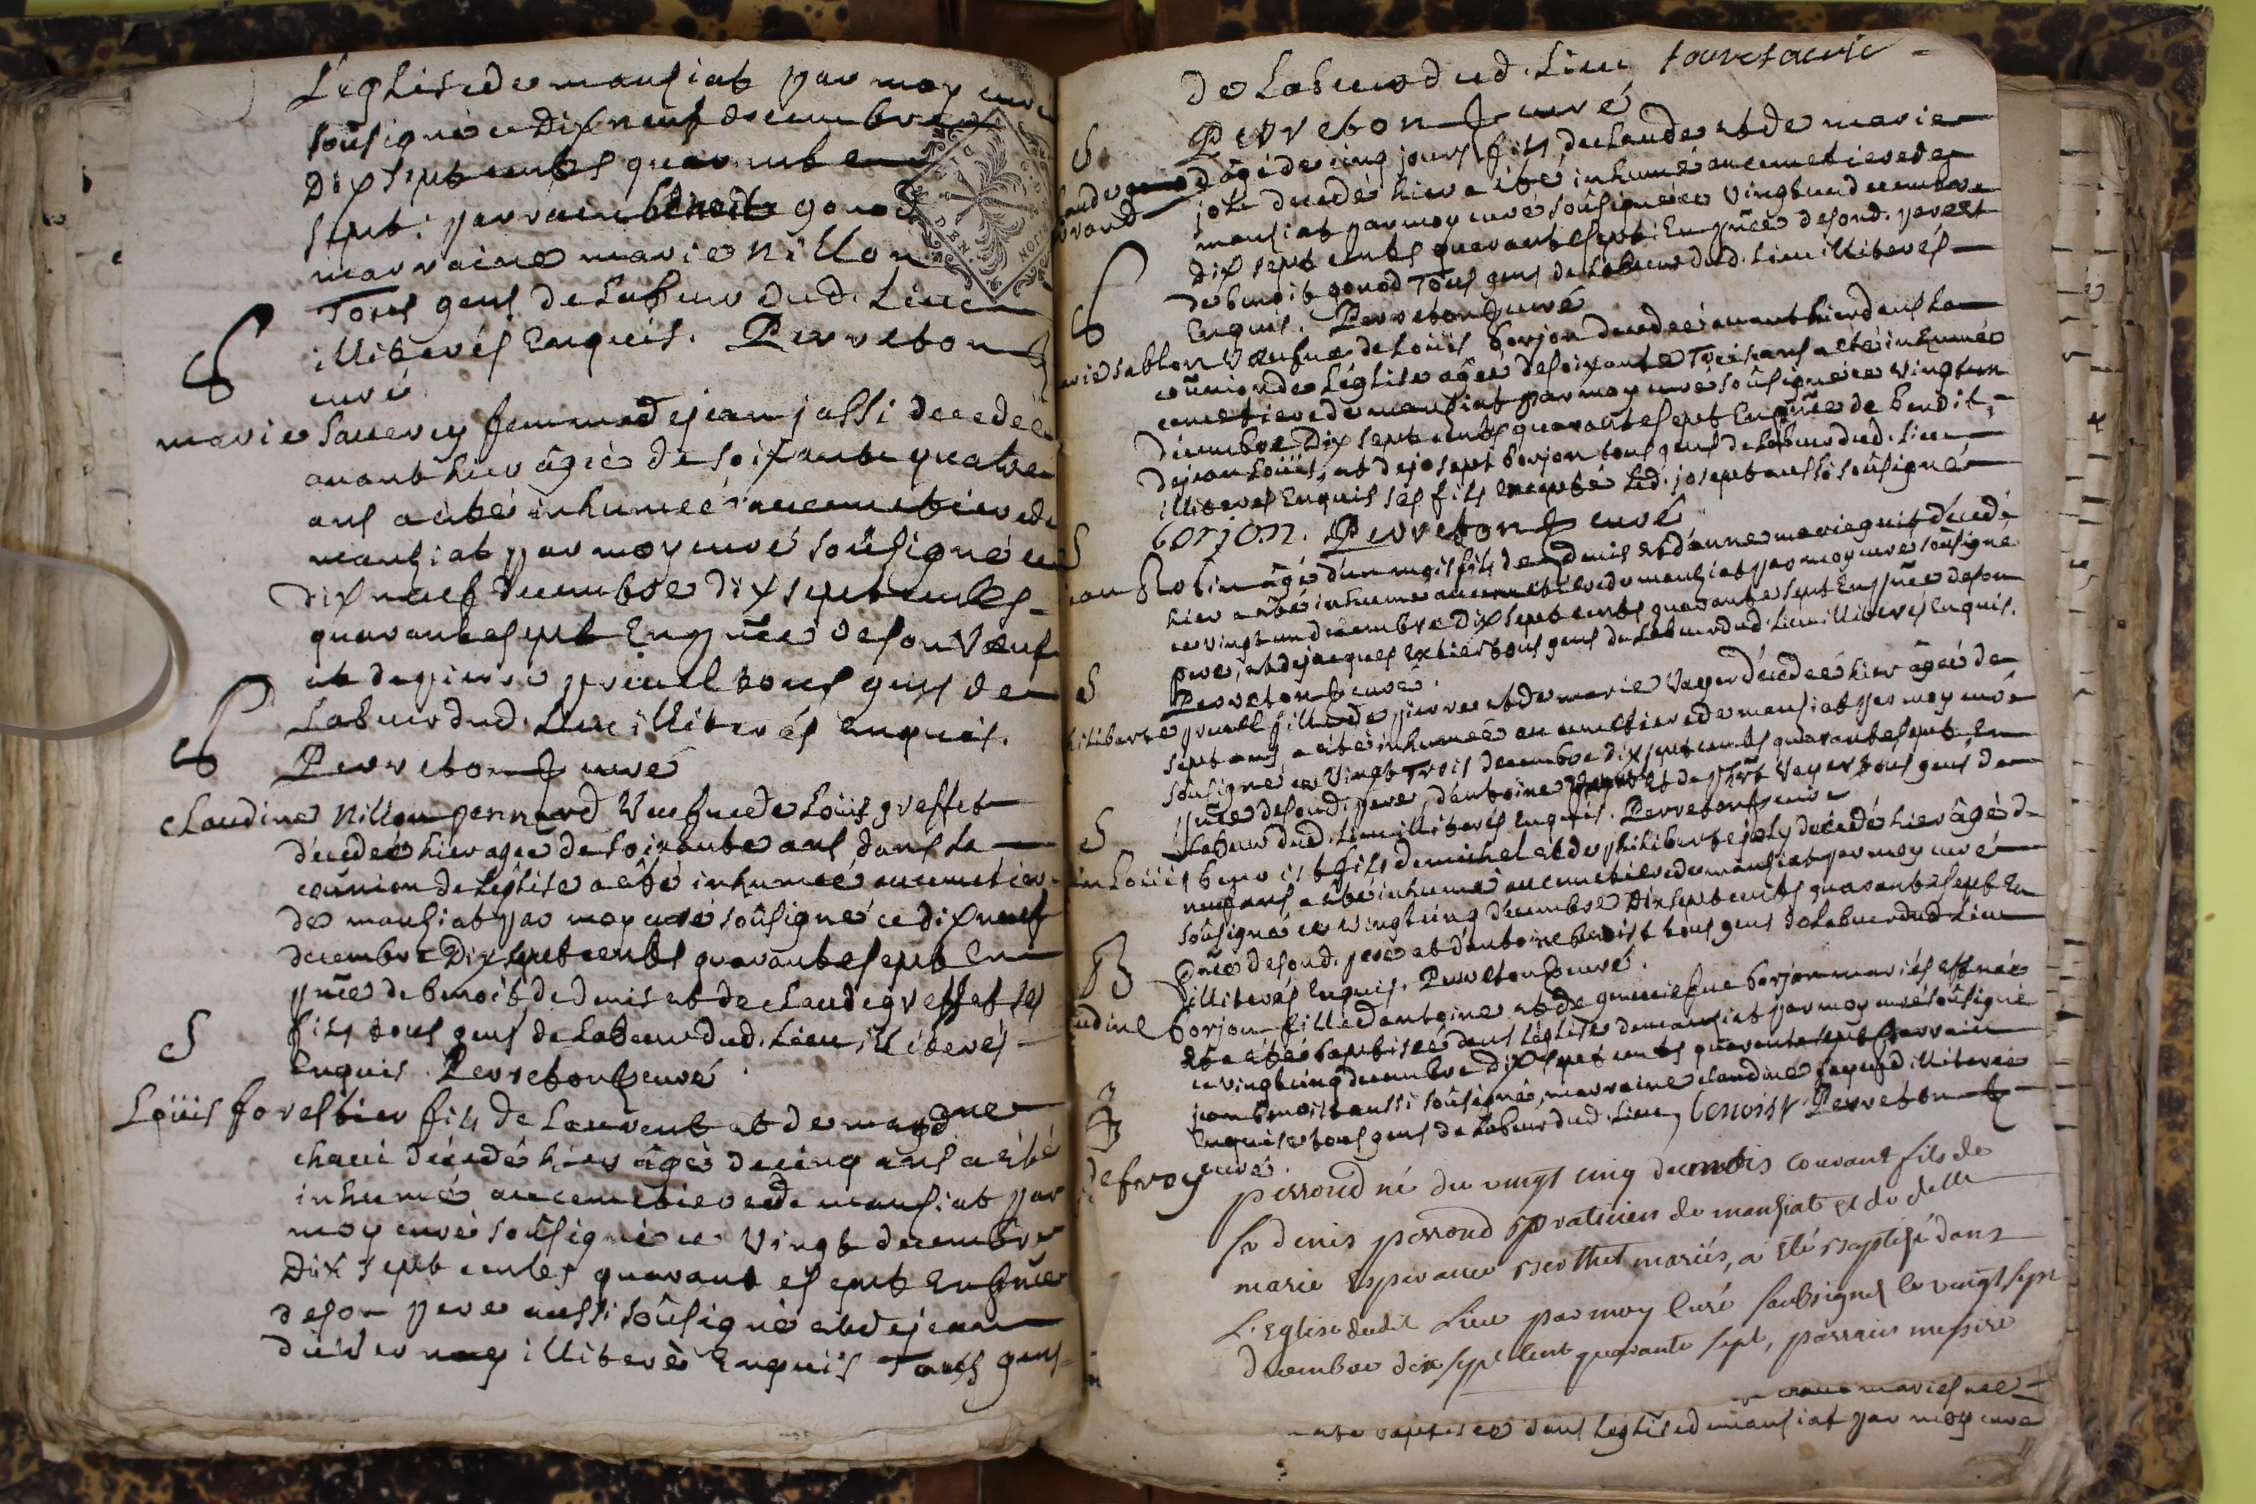 L'eglise de mansiat par moy curé
soûsigné ce dix neuf decembre
dix sept cents quarante
sept. parrain benoit gonod
marraine marie nillon
Tous gens de Labeur dud. Lieu
illiterés Enquis. Perreton
curé
marie Sauevey femme de jean jassi decedée
avant hier âgée de soixante quatre
ans a eté inhumée au cemetiere de
mansiat par moy curé soûsigné ce
dix neuf decembre dix sept cents
quarante sept En pñce de son Vœuf
et de pierre pruel tous gens de
Labeur dud. Lieu illiterés Enquis.
Perreton curé
Claudine nillon pennard Veufue de Loüis greffet
décedée hier agée de soixante ans dans la
com̃union de Leglise a eté inhumée au cemetiere
de mansiat par moy curé soûsigné ce dix neuf
decembre Dix sept cents quarante sept En
pñce de benoit, de denis et de claude greffet ses
fils tous gens de Labeur dud. Lieu illiterés
Enquis. Perreton curé
S
Loüis forestier fils de Laurent et de magd.ne
chaué décedé hier âgé de cinq ans a eté
inhumé au cemetiere de mansiat par
moy curé soûsigné ce Vingt decembre
Dix sept cents quarante sept En pñce
de son pere aussi soûsigné et de jean
duvernay illiteré Enquis Tous gens
de Labeur dud. Lieu
Perreton curé
S
âgé de cinq jours fils de claude et de marie
joli decedé hier a eté inhumé au cemetiere de
mansiat par moy curé soûsigné ce Vingt un decembre
Dix sept cents quarante sept En pñce de sond. pere et
de benoit gonod Tous gens de Labeur dud. Lieu illiterés
Enquis. Perreton curé
sablon Vœufue de Loüis borjon decedée avant hier dans la
com̃union de Léglise âgée de soixante Treize ans a eté inhumée
cemetiere de mansiat par moy curé soûsigné ce Vingt un
decembre Dix sept cents quarante sept En pñce de benoit,
de jean Loüis, et de josept borjon tous gens de Labeur dud. Lieu
illiterés Enquis ses fils Excepté Led. josept aussi soûsigné
borjon. Perreton curé
S
Robin âgé d'un mois fils de denis et d'anne marie guit décedé
hier a eté inhumé au cemetiere de mansiat par moy curé soûsigné
ce vingt un decembre Dix sept cents quarante sept En pñce de son
pere, et de jacques tous gens de Labeur dud. Lieu illiterés Enquis.
Perreton curé.
S
pruel fille de pierre et de marie Vayer décedée hier âgée de
sept ans a eté inhumée au cemetiere de mansiat par moy curé
soûsigné ce Vingt Trois decembre dix sept cents quarante sept En
pñce de sond. pere, d'antoine et de Vayer tous gens de
Labeur dud. Lieu illiterés Enquis. Perreton curé
S
Loüis benoist fils de michel et de philiberte joly décedé hier âgé de
neuf ans a eté inhumé au cemetiere de mansiat par moy curé
soûsigné ce Vingt cinq decembre Dix sept cents quarante sept En
pñce de sond. pere et d'antoine benoist tous gens de Labeur dud. Lieu
illiterés Enquis. Perreton curé.
B
borjon fille d'antoine et de genevieſue borjon mariés est née
et a eté baptisée dans L'église de mansiat par moy curé soûsigné
ce vingt cinq decembre dix sept cents quarante sept parrain
jean benoist aussi soûsigné, marraine claudine illiterée
Enquise tous gens de Labeur dud. Lieu, benoist Perreton
curé.
perroud né du vingt cinq du mois courant fils de
Sr denis perroud praticien de mansiat et de delle
marie Esperance mariés, a Eté baptisé dans
L'Eglise dudit Lieu par moy Curé soubsigné le vingt sept
decembre dix sept cent quarante sept, parrain messire
mariés née
baptisée dans Leglise de mansiat par moy curé